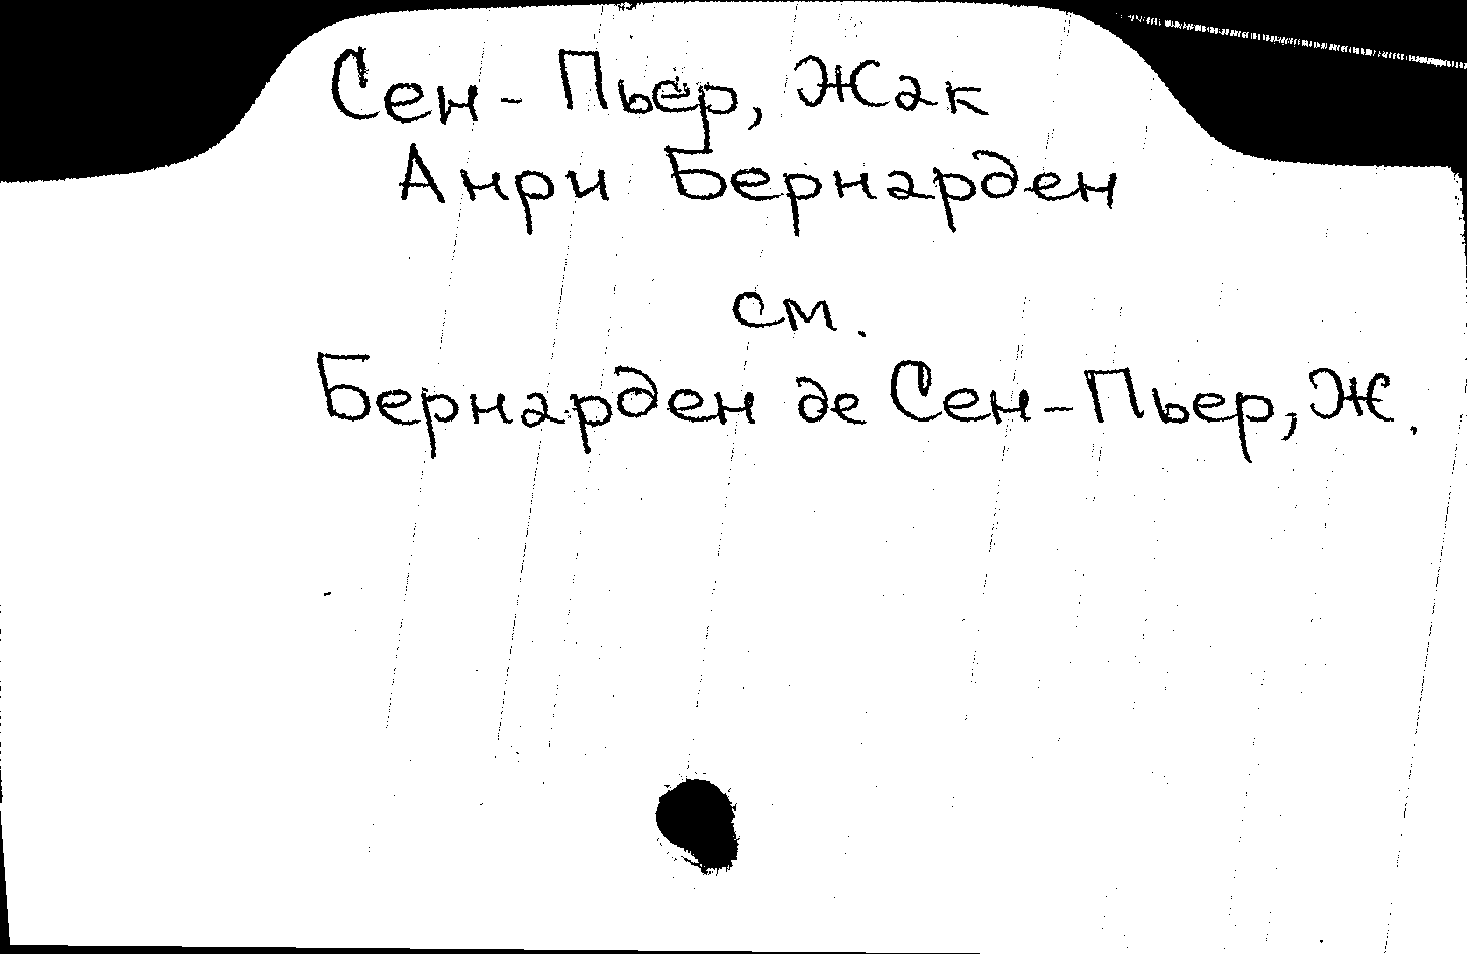 Сен-Пьер, Жак
Анри Бернарден
см.
Бернарден де Сен-Пьер, Ж.